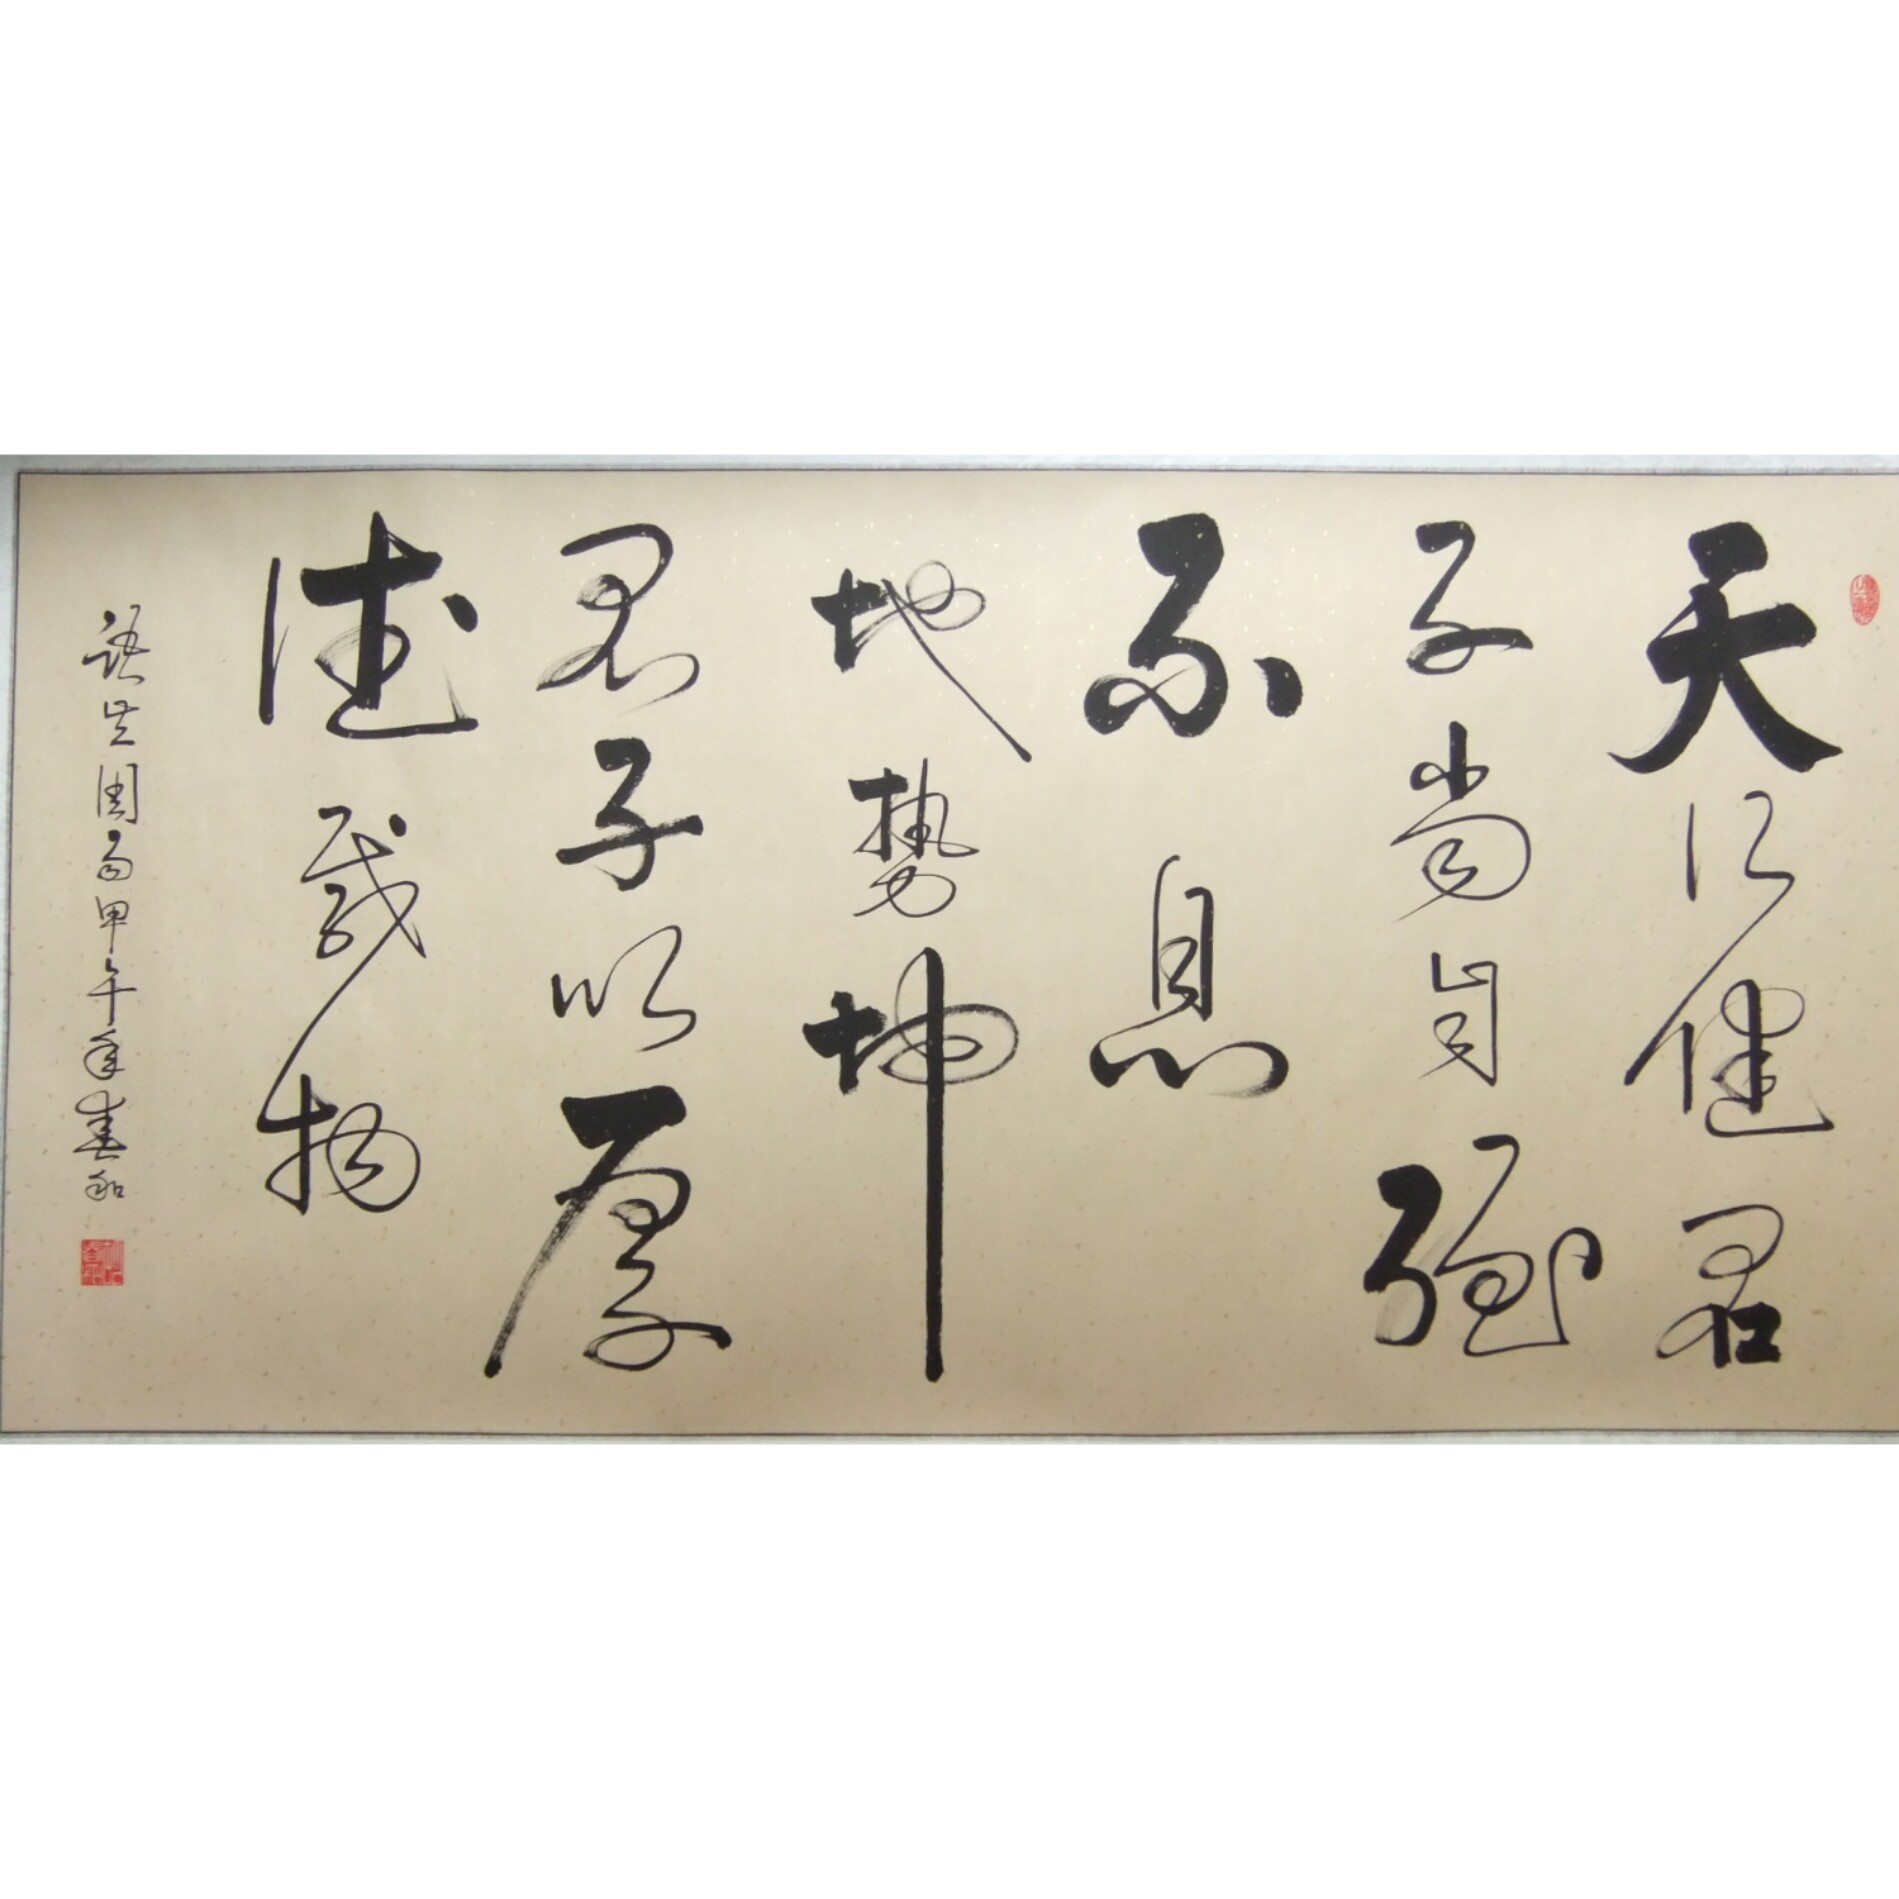 天行健君
子当自强
不息
地势坤
君子以厚
德载物
语出周易甲午年春和